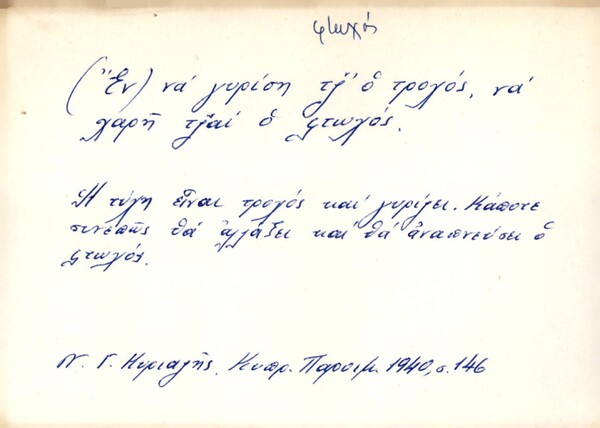 φτωχός
(Ἔν) νά γυρίση τζ̆' ὁ τροχός, νά
χαρῆ τζ̆αί ὁ φτωχός.
Ἡ τύχη εἶναι τροχός καί γυρίζει. Κάποτε
συνεπῶς θά ἀλλάξει καί θά ἀναπνεύσει ὁ
φτωχός.
Ν. Γ. Κυριαζῆς, Κυπρ. Παροιμ. 1940, σ. 146